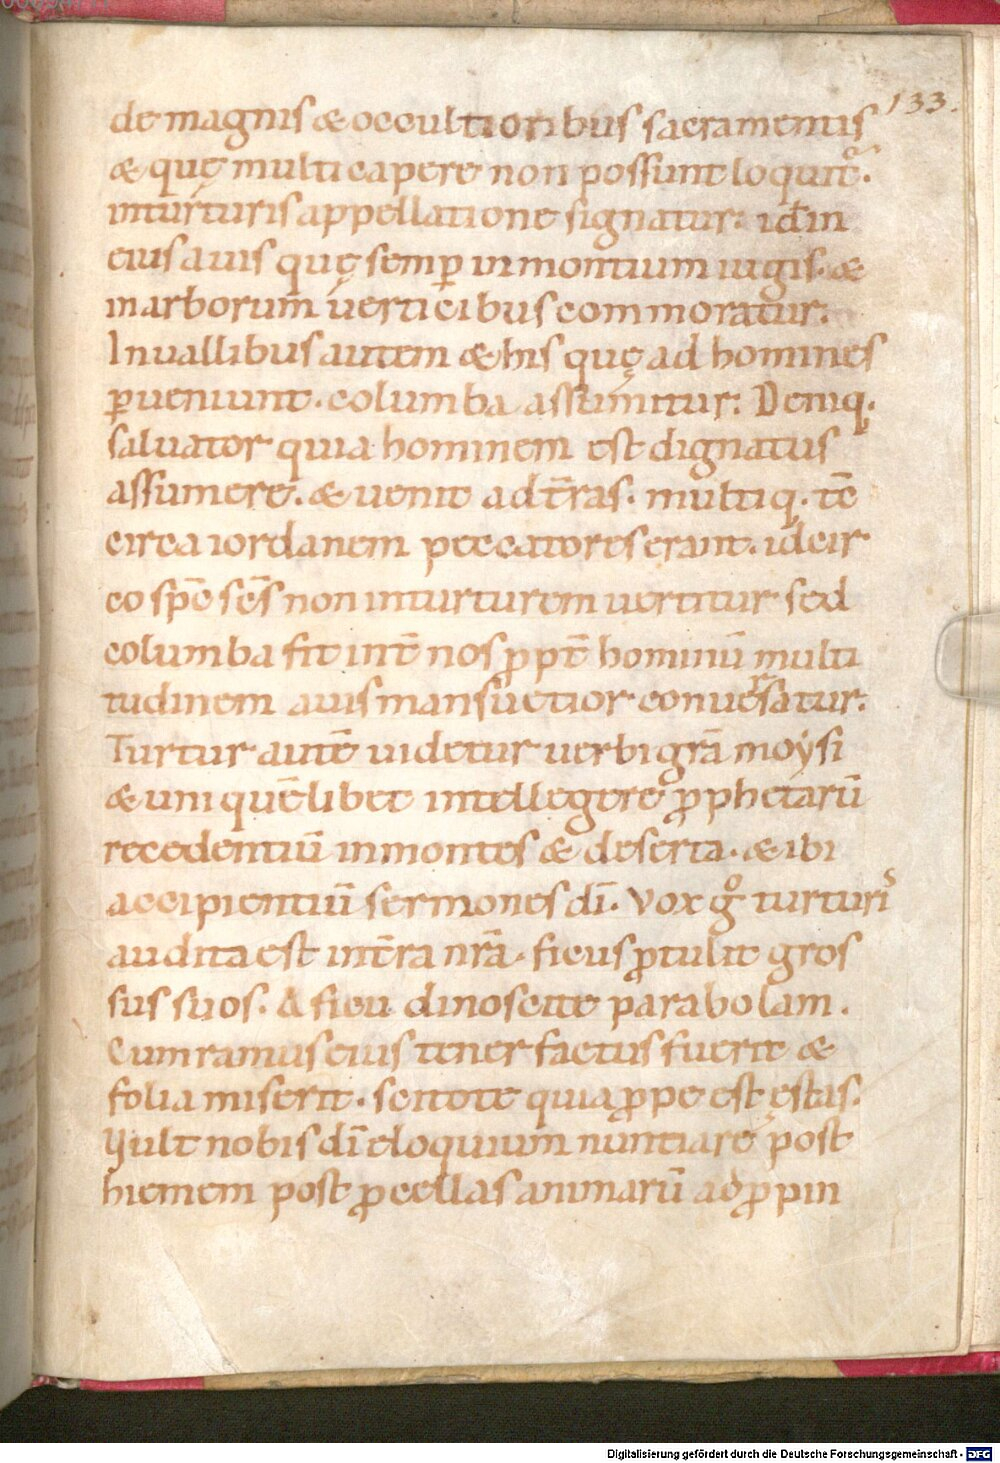 133.
de magnis & occultioribus sacramentis
& quę multi capere non possunt loquit᷑.
inturturis appellatione signatur: idẽ in
eius auis quę semꝑ in montium iugis. &
in arborum uerticibus commoratur:
In uallibus autem & his quę ad homines
ꝑueniunt. columba assumitur: Deniq.
saluator quia hominem est dignatus
assumere. & uenit ad t̄ras. multiq. tc̄
circa iordanem peccatores erant. idcir
co sp̄c sc̄s non in turturem uertitur sed
columba fit int̄ nos ꝓpt̄ hominū multi
tudinem auis mansuetior conuersatur:
Turtur autē uidetur uerbi gr̄a moysi
& uni quēlibet intellegere ꝓphetarū
recedentiū in montes & deserta. & ibi
accipientiū sermones dī. Vox gͦ turturis
audita est in t̄ra nr̄a. ficus ꝓtulit gros
sus suos. A ficu dinoscite parabolam.
Cum ramus eius tener factus fuerit &
folia miserit. scitote quia ꝓpe est ęstas.
Vult nobis dī eloquium nuntiare post
hiemem post ꝓcellas animarū ad ꝓpin
Digitalisierung gefördert durch die Deutsche Forschungsgemeinschaft - DFG